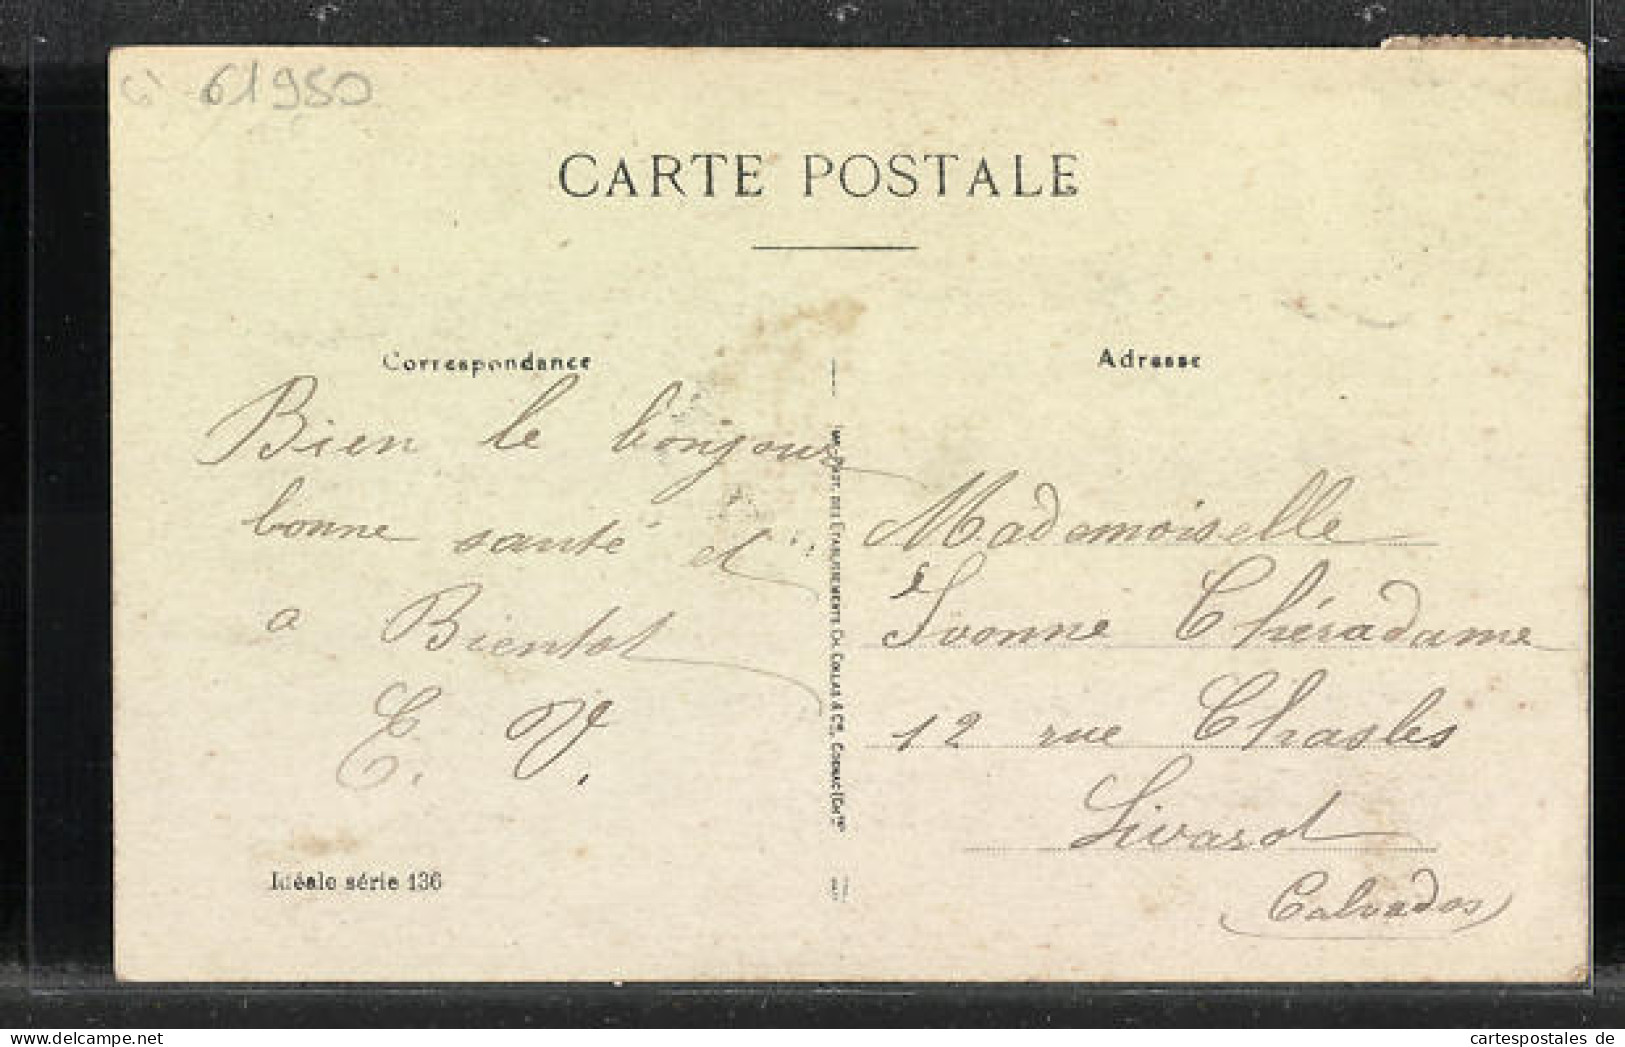 61950
CARTE POSTALE
Correspondance
Adresse
Bien le bonjour
bonne santé et
a Bientot
E. V.
Idéale série 136
ETABLISSEMENTS CH. COLLAS & Cie, COGNAC
Mademoiselle
Yvonne Chéradame
12 rue Chasles
Livarot
(Calvados)
cartespostales de